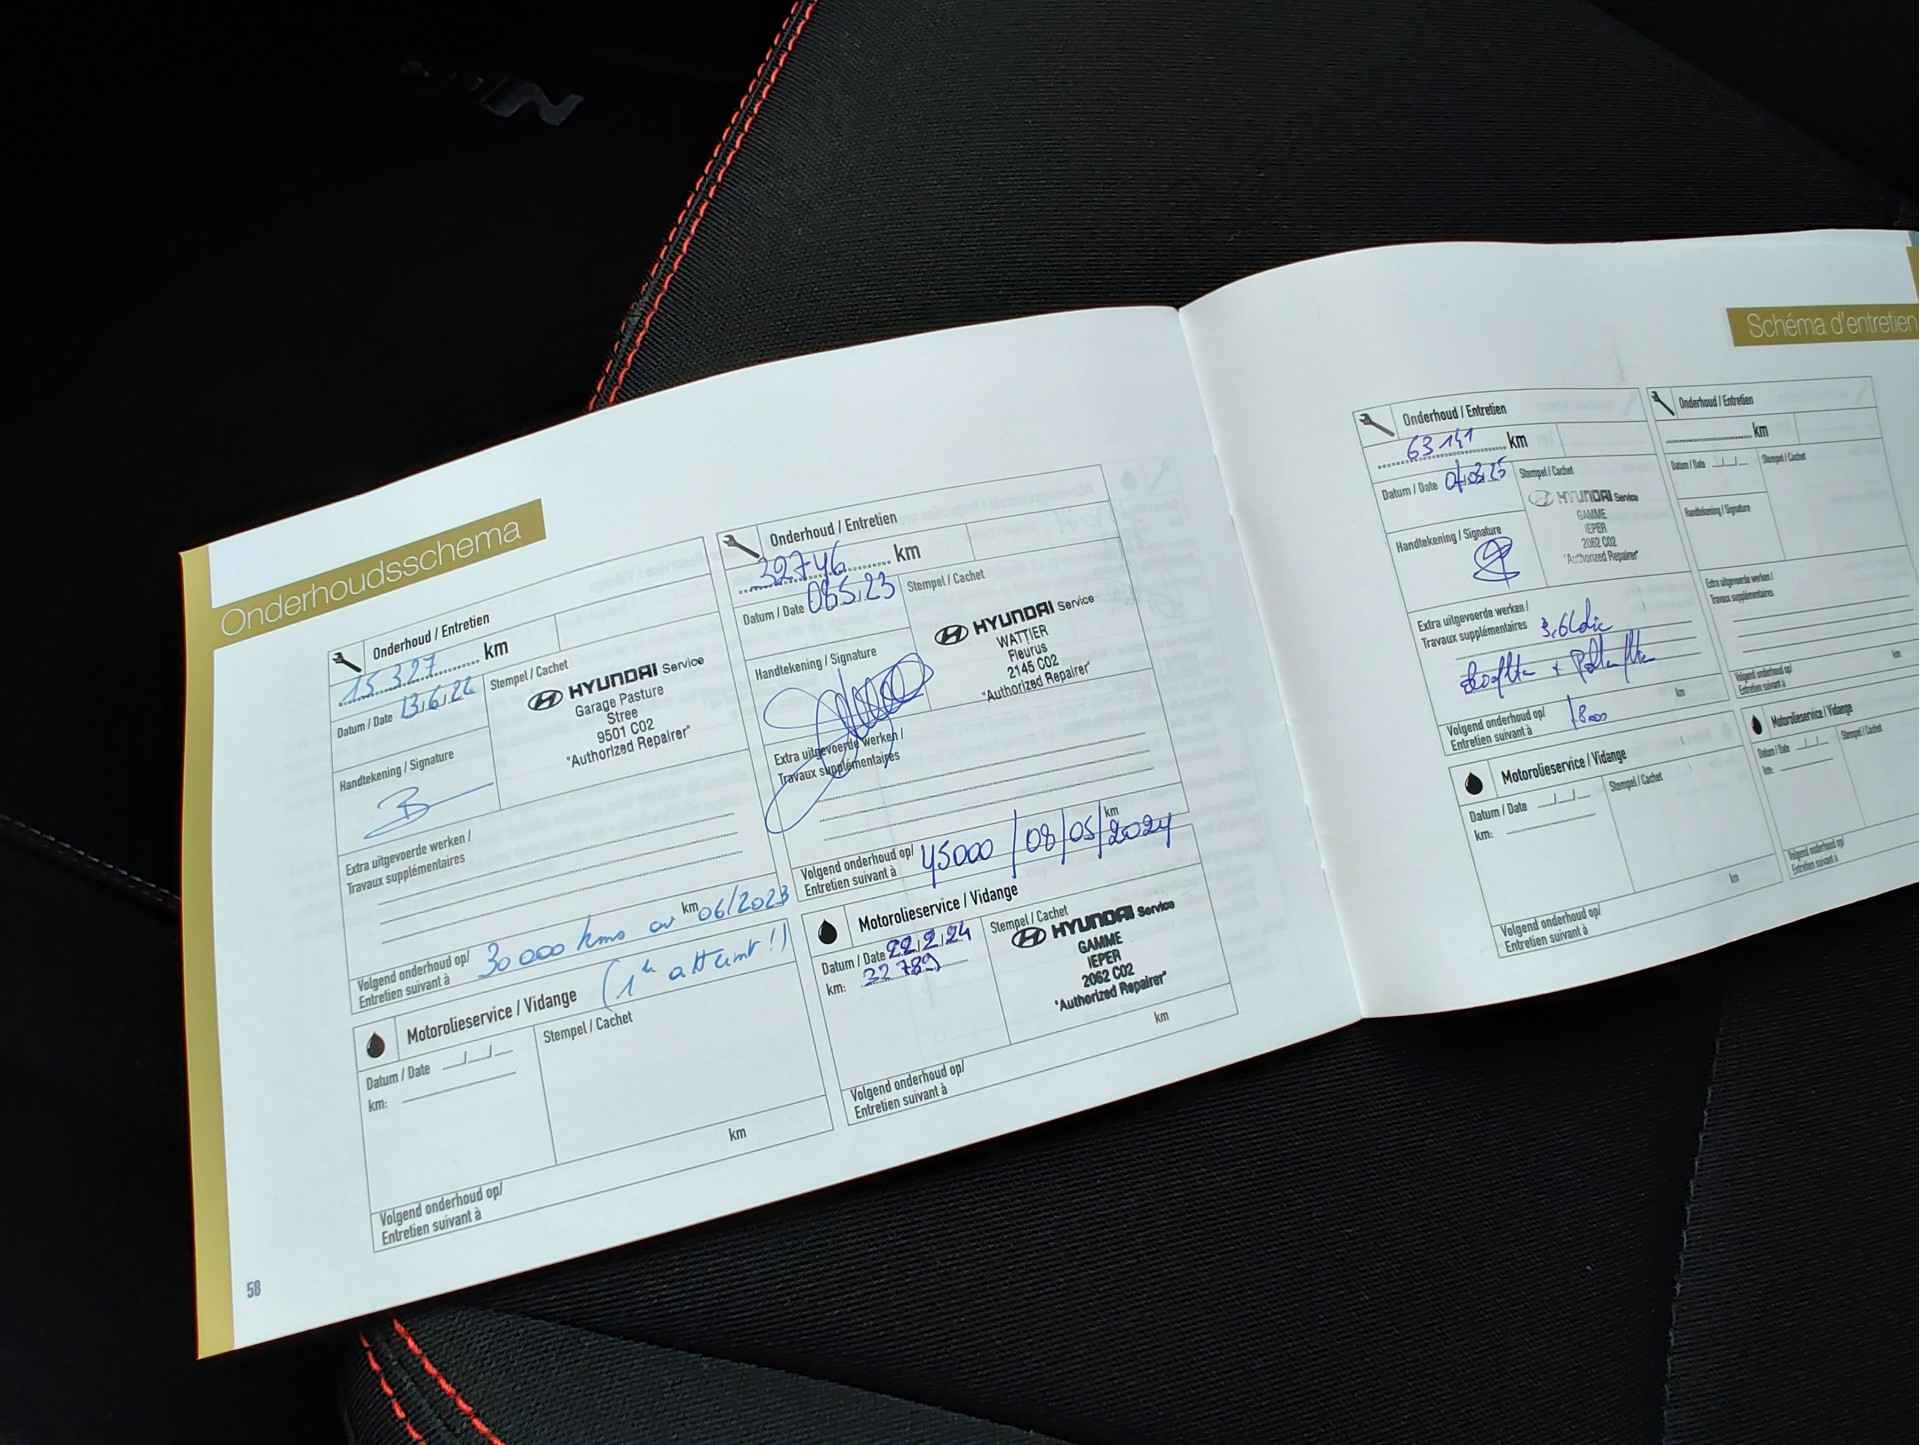 Onderhoudsschema
Onderhoud / Entretien
15 327 km
Datum / Date 13,6,22
Stempel / Cachet
HYUNDAI Service
Garage Pasture
Stree
9501 C02
"Authorized Repairer"
Handtekening / Signature
Extra uitgevoerde werken /
Travaux supplémentaires
km
Volgend onderhoud op/
Entretien suivant à
30 000 kms ou 06/2023
(1er atteint !)
Motorolieservice / Vidange
Datum / Date __/__/__
km:
Stempel / Cachet
km
Volgend onderhoud op/
Entretien suivant à
58
Onderhoud / Entretien
32746 km
Datum / Date
Stempel / Cachet
HYUNDAI Service
WATTIER
Fleurus
2145 C02
"Authorized Repairer"
Handtekening / Signature
Extra uitgevoerde werken /
Travaux supplémentaires
km
Volgend onderhoud op/
Entretien suivant à
45000 / 08/05/2024
Motorolieservice / Vidange
Datum / Date 22,2,24
km: 32 789
Stempel / Cachet
HYUNDAI Service
GAMME
IEPER
2062 C02
"Authorized Repairer"
km
Volgend onderhoud op/
Entretien suivant à
Schéma d'entretien
Onderhoud / Entretien
63141 km
Datum / Date
Stempel / Cachet
HYUNDAI Service
GAMME
IEPER
2062 C02
"Authorized Repairer"
Handtekening / Signature
Extra uitgevoerde werken /
Travaux supplémentaires
km
Volgend onderhoud op/
Entretien suivant à
Motorolieservice / Vidange
Datum / Date __/__/__
km:
Stempel / Cachet
km
Volgend onderhoud op/
Entretien suivant à
Onderhoud / Entretien
km
Datum / Date __/__/__
Stempel / Cachet
Handtekening / Signature
Extra uitgevoerde werken /
Travaux supplémentaires
km
Volgend onderhoud op/
Entretien suivant à
Motorolieservice / Vidange
Datum / Date __/__/__
km:
Stempel / Cachet
Volgend onderhoud op/
Entretien suivant à